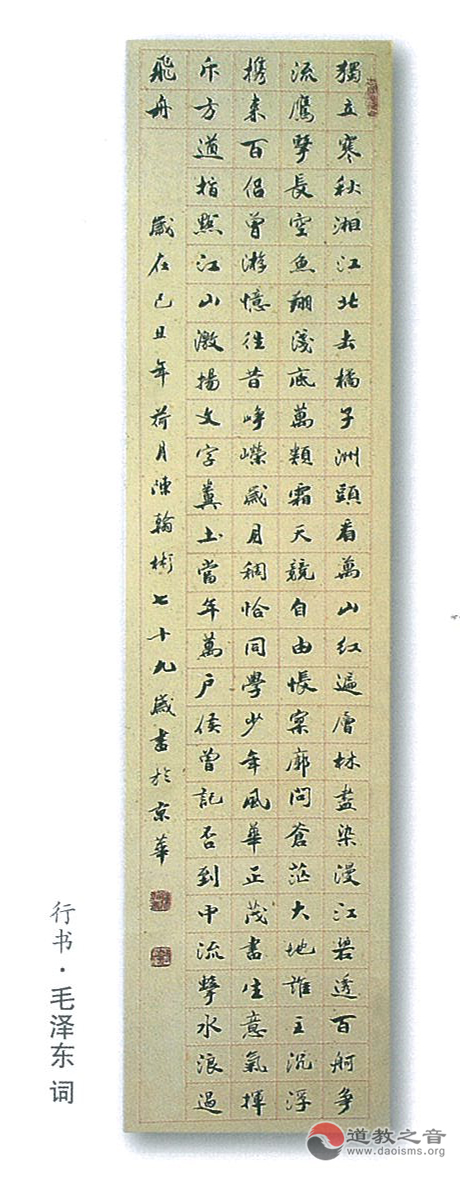 獨立寒秋湘江北去橘子洲頭看萬山红遍層林盡染漫江碧透百舸爭
流鷹擊長空魚翔淺底萬類霜天競自由悵寥廓問蒼茫大地誰主沉浮
携来百侣曾游憶往昔崢嶸歲月稠恰同學少年風華正茂書生意氣揮
斥方遒指點江山激揚文字糞土當年萬户侯曾記否到中流擊水浪遏
飛舟
歲在己丑年荷月陳翰彬七十九歲書於京華
行书·毛泽东词
道教之音
www.daoisms.org